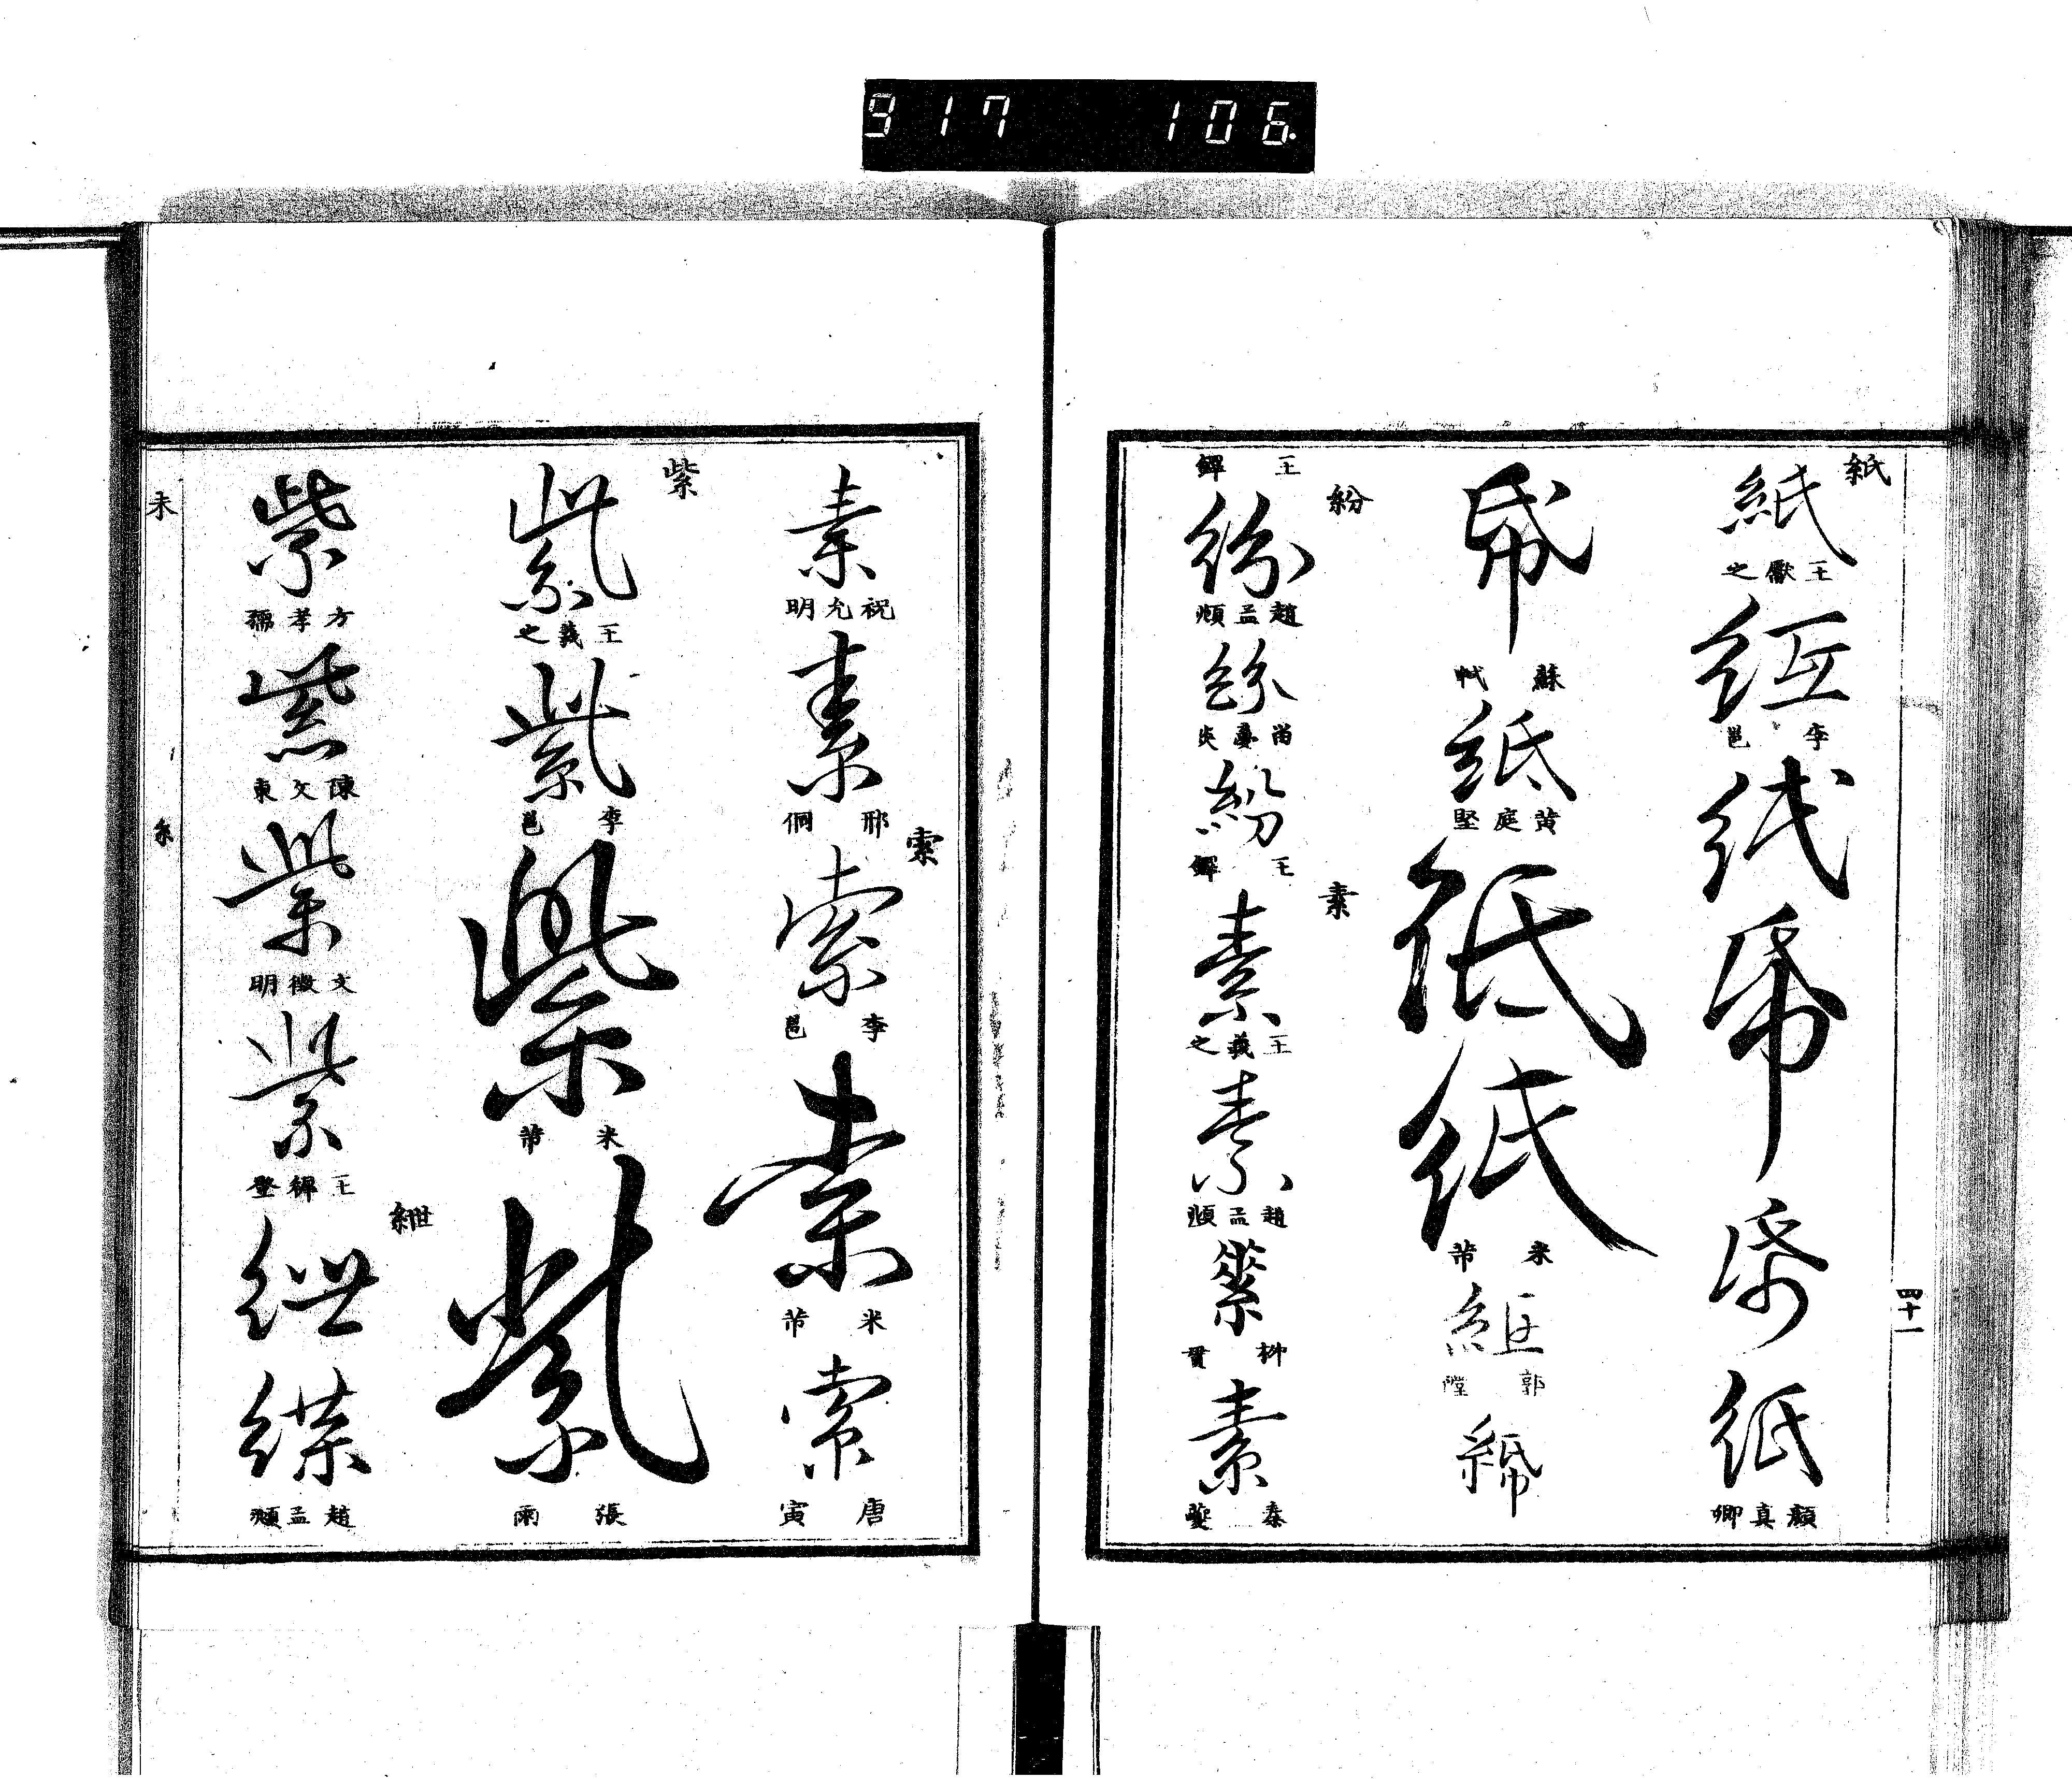 917 106
紙
紙
王獻之
紙
李邕
紙
帋
帋
紙
顏真卿
四十一
帋
蘇軾
紙
黄庭堅
紙
紙
米芾
紙
郭
王鐸
紛
紛
趙孟頫
紛
紛
王鐸
素
素
王羲之
素
趙孟頫
素
素
秦夔
素
祝允明
素
邢侗
索
索
李邕
索
米芾
索
唐寅
紫
紫
王羲之
紫
李邕
紫
米芾
紫
張雨
紫
方孝孺
紫
陳文東
紫
文徵明
紫
王鐸
紲
紲
緤
趙孟頫
未
糸